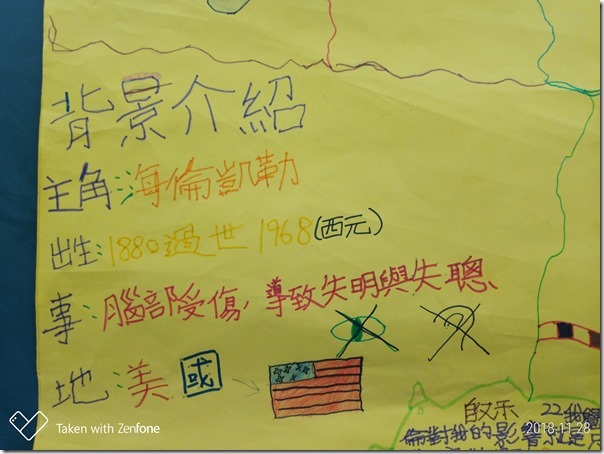 背景介紹
主角:海倫凱勒
出生:1880過世1968(西元)
事:腦部受傷,導致失明與失聰、
地:美國
啟示 22
倫對我的影響就是
Taken with Zenfone
2018.11.28